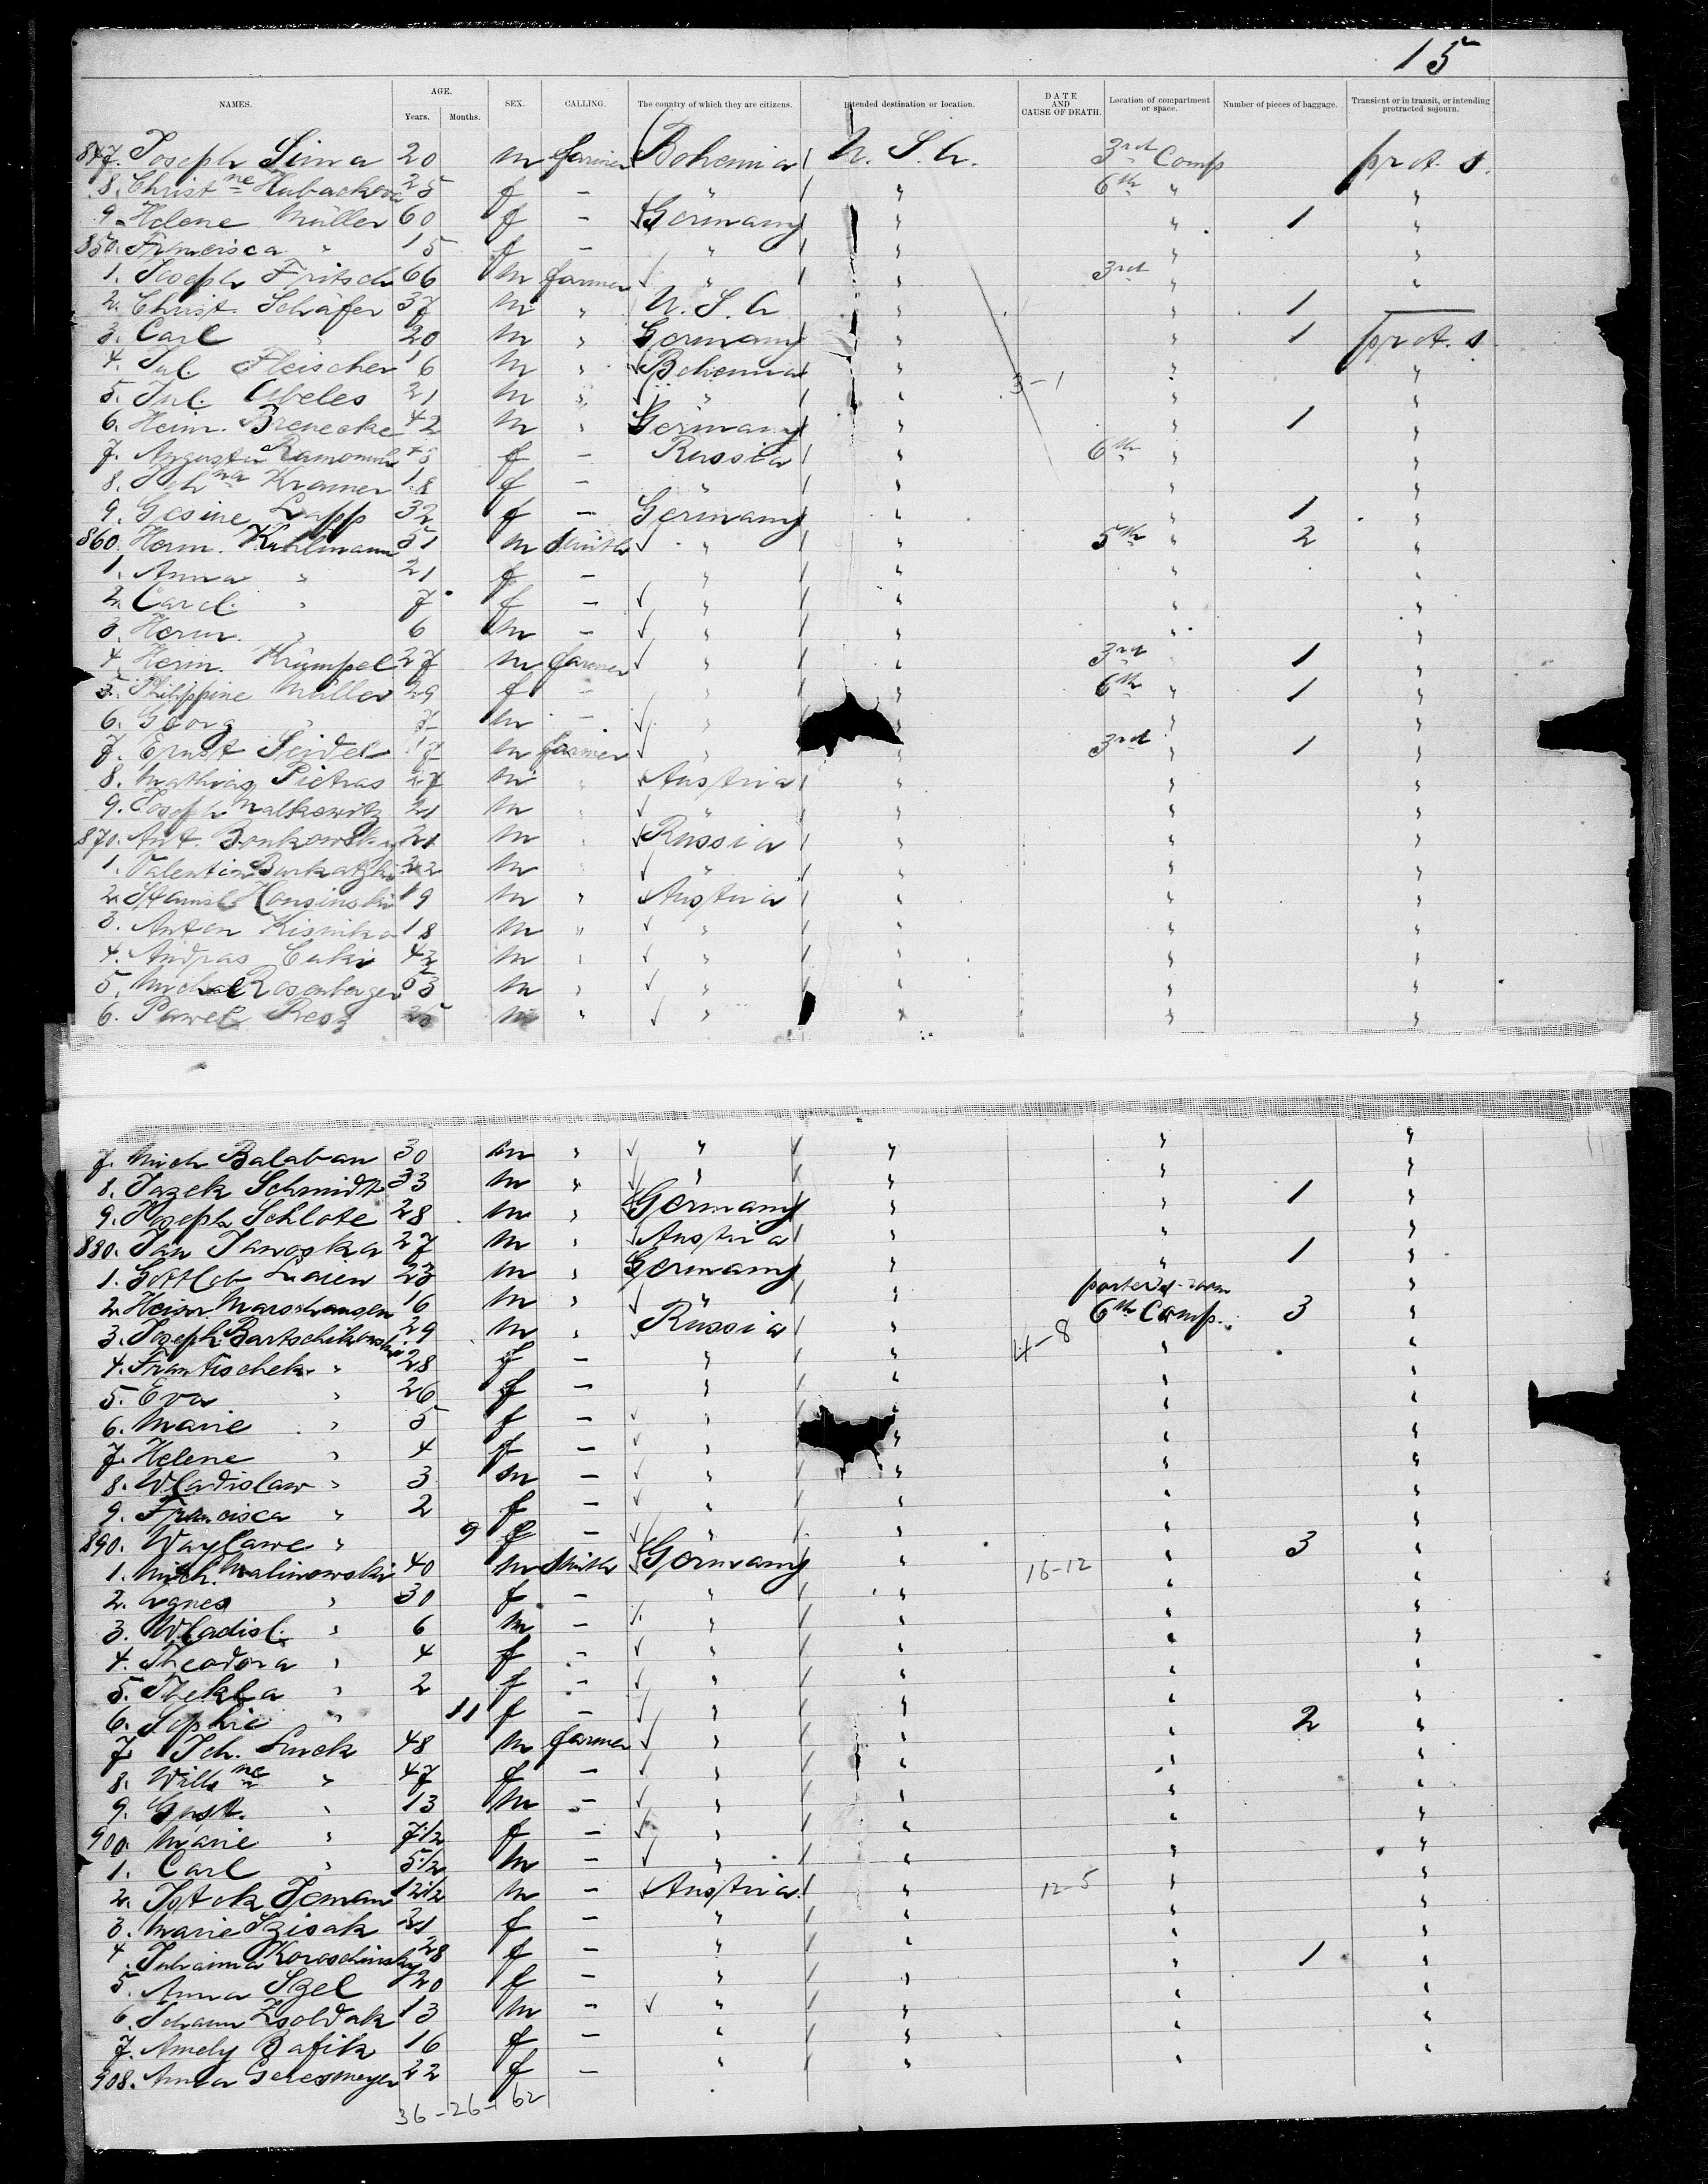 15
NAMES. AGE. Years. Months. SEX. CALLING. The country of which they are citizens. Intended destination or location. DATE AND CAUSE OF DEATH. Location of compartment or space. Number of pieces of baggage. Transient or in transit, or intending protracted sojourn.
847. Joseph Sima 20 m farmer Bohemia U. S. A. 3rd Comp prot. s.
8. Christne 25 f — " " 6th " "
9. Helene Müller 60 f — Germany " " 1 "
850. Francisca " 15 f — " " " "
1. Joseph Fritsch 66 m farmer " " 3rd " "
2. Christ. Schäfer 37 m " U. S. A " " 1 —
3. Carl " 20 m " Germany " " 1 prot. s
4. Jul. Fleischer 16 m " Bohemia " " "
5. Jul. Abeles 21 m " " " 3-1 " "
6. Heinr. Brenecke 42 m " Germany " " 1 "
7. Augusta f — Russia " 6th " "
8. Johna Kramer 18 f — " " " "
9. Gesine Lapp 32 f — Germany " " 1 "
860. Herm. Kuhlmann 51 m Smith " " 5th " 2 "
1. Anna " 21 f — " " " "
2. Carol. " 7 f — " " " "
3. Herm. " 6 m — " " " "
4. Herm. Krümpel 27 m farmer " " 3rd " 1 "
5. Philippine Müller 29 f — " " 6th " 1 "
6. Georg " 7 m — " " " "
7. Ernst Seidel 17 m farmer " " 3rd " 1 "
8. Mathias Pietras 27 m " Austria " " "
9. Joseph Malkewitz 21 m " " " " "
870. Ant. 21 m " Russia " " "
1. Valentin 22 m " " " " "
2. Stanisl. 19 m " Austria " " "
3. Anton 18 m " " " " "
4. Andras 42 m " " " " "
5. Michael Rosenberger 53 m " " " " "
6. Pawel 25 m " " " " "
7. Mich. Balaban 30 m " " " " "
8. Jazek Schmidt 33 m " " " " "
9. Joseph Schlote 28 m " Germany " " 1 "
880. Jan Janoska 27 m " Austria " " "
1. Gottlob 23 m " Germany " " 1 "
2. Heinr. Marshausen 16 m " " " "
3. Joseph Bartschikowski 29 m " Russia " 4-8 6th Comp. 3 "
4. Frantischek " 28 f — " " " "
5. Eva " 26 f — " " " "
6. Marie " 5 f — " " " "
7. Helene " 4 f — " " " "
8. Wladislaw " 3 m — " " " "
9. Francisca " 2 f — " " " "
890. Wayslawe " 9 f — " " " "
1. Mich. Malinowski 40 m Smith Germany " 16-12 " 3 "
2. Agnes " 30 f — " " " "
3. Wladisl. " 6 m — " " " "
4. Theodora " 4 f — " " " "
5. Thekla " 2 f — " " " "
6. Sophie " 11 f — " " " "
7. Joh. Linck 48 m farmer " " " 2 "
8. Wilhne " 47 f — " " " "
9. Gust. " 13 m — " " " "
900. Marie " 7 1/2 f — " " " "
1. Carl " 5 1/2 m — " " " "
2. 12 1/2 m — Austria " 12-5 " "
3. Marie 21 f — " " " "
4. Koroschinsky 28 f — " " " 1 "
5. Anna Szel 20 f — " " " "
6. Johann Zsoldak 13 m — " " " "
7. Amely Bafik 16 f — " " " "
908. Anna Geresmeyer 22 f — " " " "
36-26-62